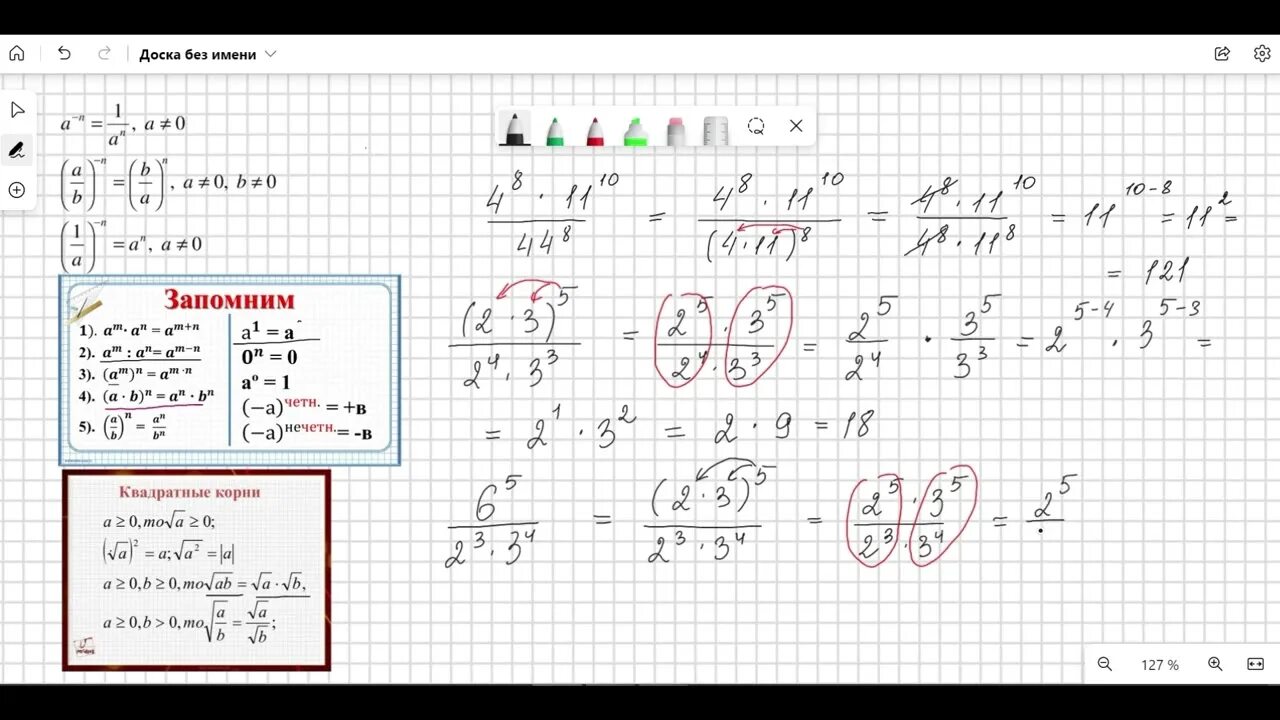 Доска без имени
a⁻ⁿ = 1/aⁿ, a ≠ 0
(a/b)⁻ⁿ = (b/a)ⁿ, a ≠ 0, b ≠ 0
(1/a)⁻ⁿ = aⁿ, a ≠ 0
Запомним
1). aᵐ· aⁿ = aᵐ⁺ⁿ
2). aᵐ : aⁿ= aᵐ⁻ⁿ
3). (aᵐ)ⁿ = aᵐ ·ⁿ
4). (a · b)ⁿ = aⁿ · bⁿ
5). (a/b)ⁿ = aⁿ/bⁿ
a¹ = a
0ⁿ = 0
a⁰ = 1
(−a)^четн. = +в
(−a)^нечетн. = -в
Квадратные корни
a ≥ 0, то √a ≥ 0;
(√a)² = a; √a² = |a|
a ≥ 0, b ≥ 0, то √ab = √a · √b,
a ≥ 0, b > 0, то √(a/b) = √a/√b;
4⁸ · 11¹⁰ / 44⁸ = 4⁸ · 11¹⁰ / (4 · 11)⁸ = 4⁸ · 11¹⁰ / 4⁸ · 11⁸ = 11¹⁰⁻⁸ = 11² =
= 121
(2 · 3)⁵ / 2⁴ · 3³ = 2⁵ · 3⁵ / 2⁴ · 3³ = 2⁵/2⁴ · 3⁵/3³ = 2⁵⁻⁴ · 3⁵⁻³ =
= 2¹ · 3² = 2 · 9 = 18
6⁵ / 2³ · 3⁴ = (2 · 3)⁵ / 2³ · 3⁴ = 2⁵ · 3⁵ / 2³ · 3⁴ = 2⁵
127 %